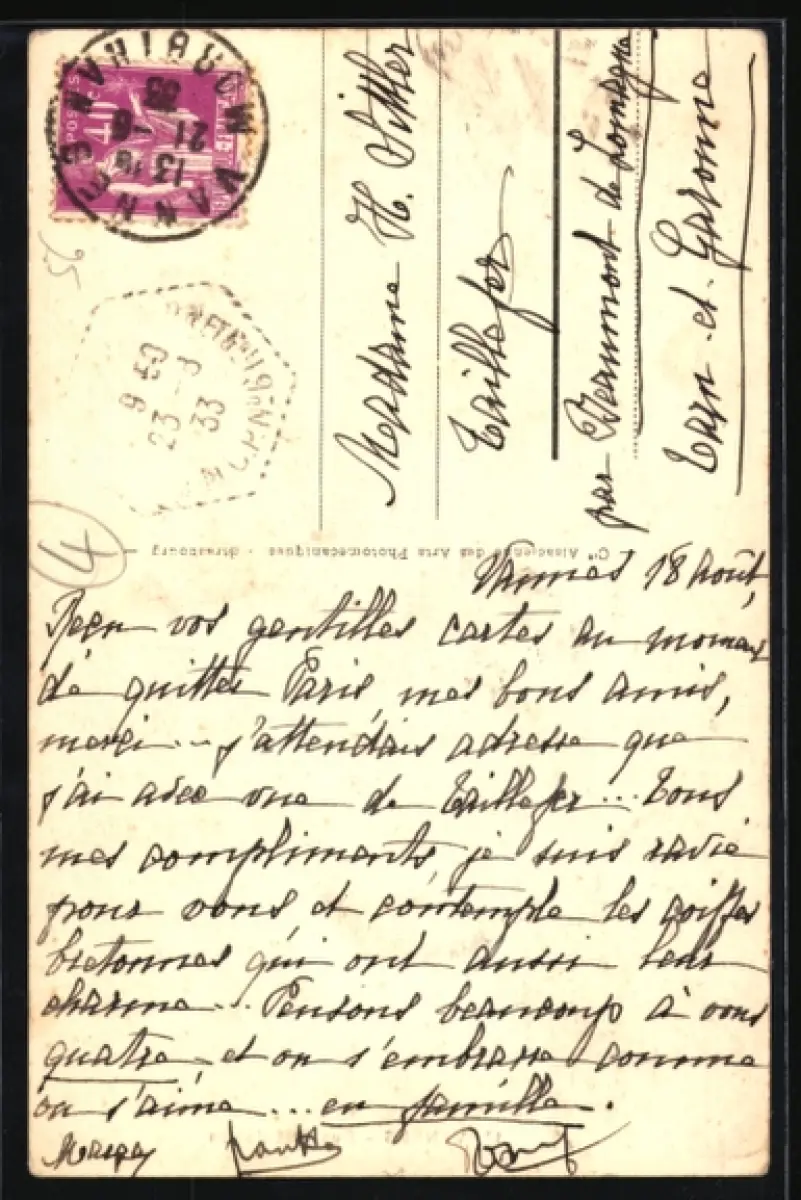 POSTES
40c
VANNES
MORBIHAN
13 15
21 -8
33
56
9 50
23 - 8
33
4
Madame H. Sittler
Taillefer
par Beaumont de Lomagne
Tarn-et-Garonne
Cie Alsacienne des Arts Photomécaniques - Strasbourg
Vannes 18 Août,
Reçu vos gentilles cartes au moment
de quitter Paris, mes bons amis,
merci... j'attendais adresse que
j'ai avec vue de Taillefer... Tous
mes compliments, je suis ravie
pour vous, et contemple les coiffes
bretonnes qui ont aussi leur
charme... Pensons beaucoup à vous
quatre, et on s'embrasse comme
on s'aime... en famille.